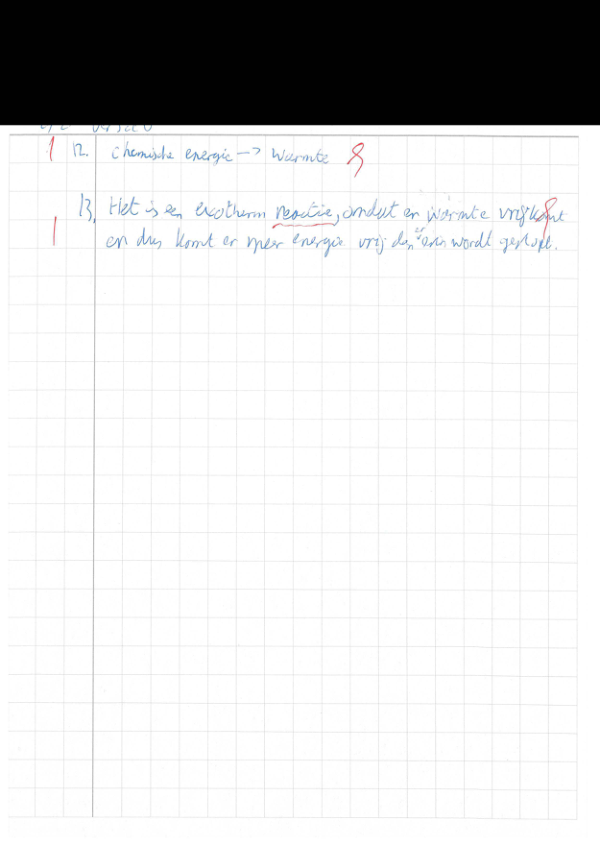 1 12. Chemische energie -> Warmte
13. Het is een exotherm reactie, omdat er warmte vrijkomt
1 en dus komt er meer energie vrij dan erin wordt gestopt.